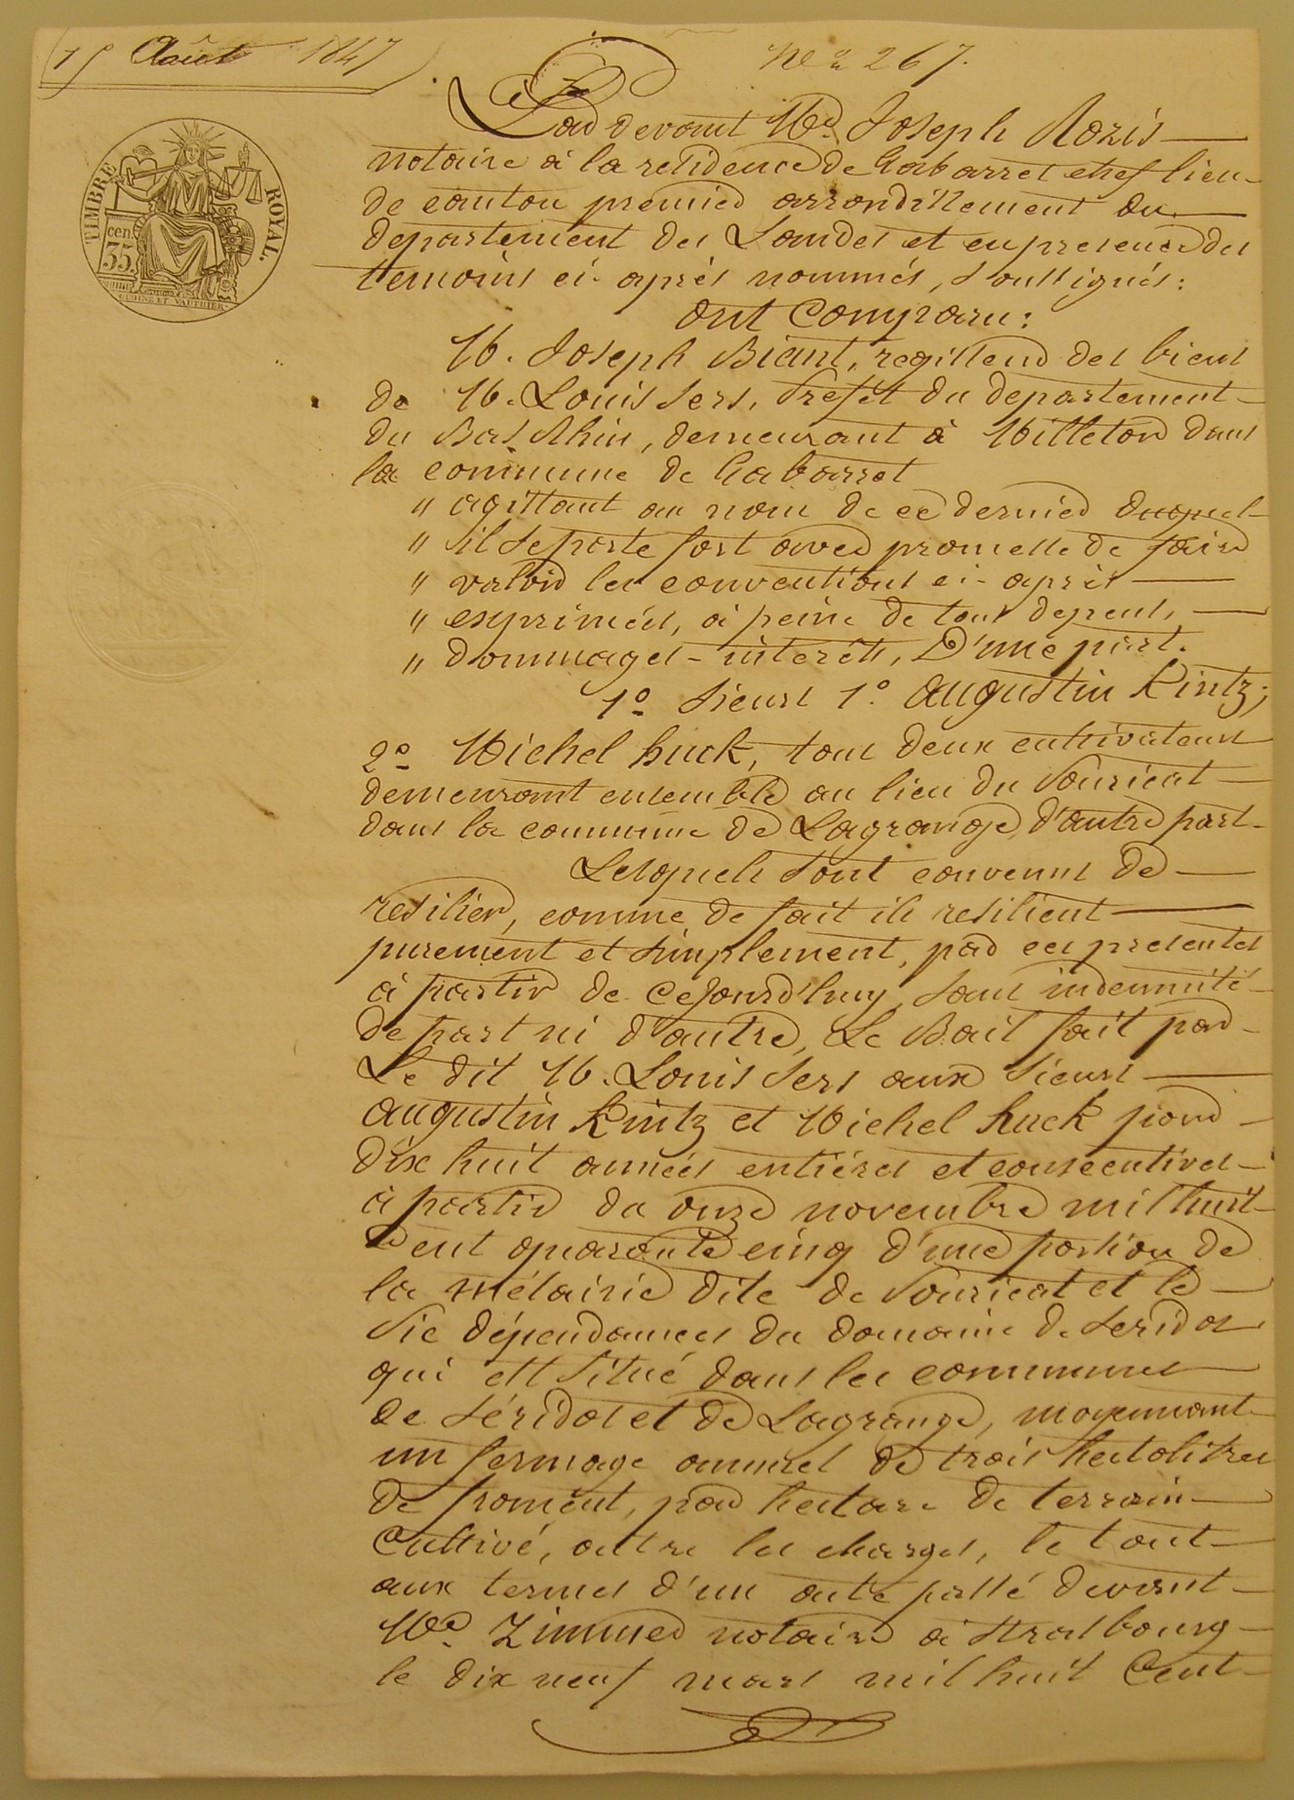 15 Août 1847
Nº 267.
Par devant Me Joseph Rozis
notaire à la residence de Gabarret chef lieu
de canton premier arrondissement du
departement des Landes et en presence des
temoins ci-après nommés, soussignés:
ont Comparu:
M. Joseph Biant, regisseur des biens
de M. Louis Sers, Préfet du departement
du Bas Rhin, demeurant à Milleton dans
la commune de Gabarret
" agissant au nom de ce dernier duquel
" il se porte fort avec promesse de faire
" valoir les conventions ci-après
" exprimées, à peine de tous depens,
" dommages-intérêts, D'une part.
1º Sieurs 1º. Augustin Kintz;
2º Michel huck, tous deux cultivateurs
demeurant ensemble au lieu du Souricat
dans la commune de Lagrange, d'autre part
Lesquels sont convenus de
resilier, comme de fait ils resilient
purement et simplement, par ces presentes
à partir de cejourd'huy, sans indemnité
de part ni d'autre, Le Bail fait par
Le dit M. Louis Sers aux Sieurs
Augustin Kintz et Michel huck pour
dix huit années entières et consecutives
à partir du onze novembre mil huit
Cent quarante cinq d'une portion de
la métairie dite de Souricat et le
Sic dépendances du domaine de Seridos
qui est Situé dans les communes
de Séridos et de Lagrange, moyennant
un fermage annuel de trois hectolitres
de froment, par hectare de terrain
Cultivé, outre les charges, le tout
aux termes d'un acte passé devant
Me. Zimmer notaire à Strasbourg
le dix neuf mars mil huit Cent
TIMBRE ROYAL.
cen. 35.